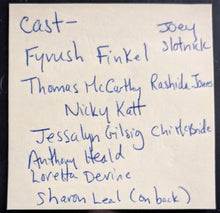 Cast-
Joey
Slotnick
Fyvush Finkel
Thomas McCarthy Rashida Jones
Nicky Katt
Jessalyn Gilsig Chi McBride
Anthony Heald
Loretta Devine
Sharon Leal (on back)